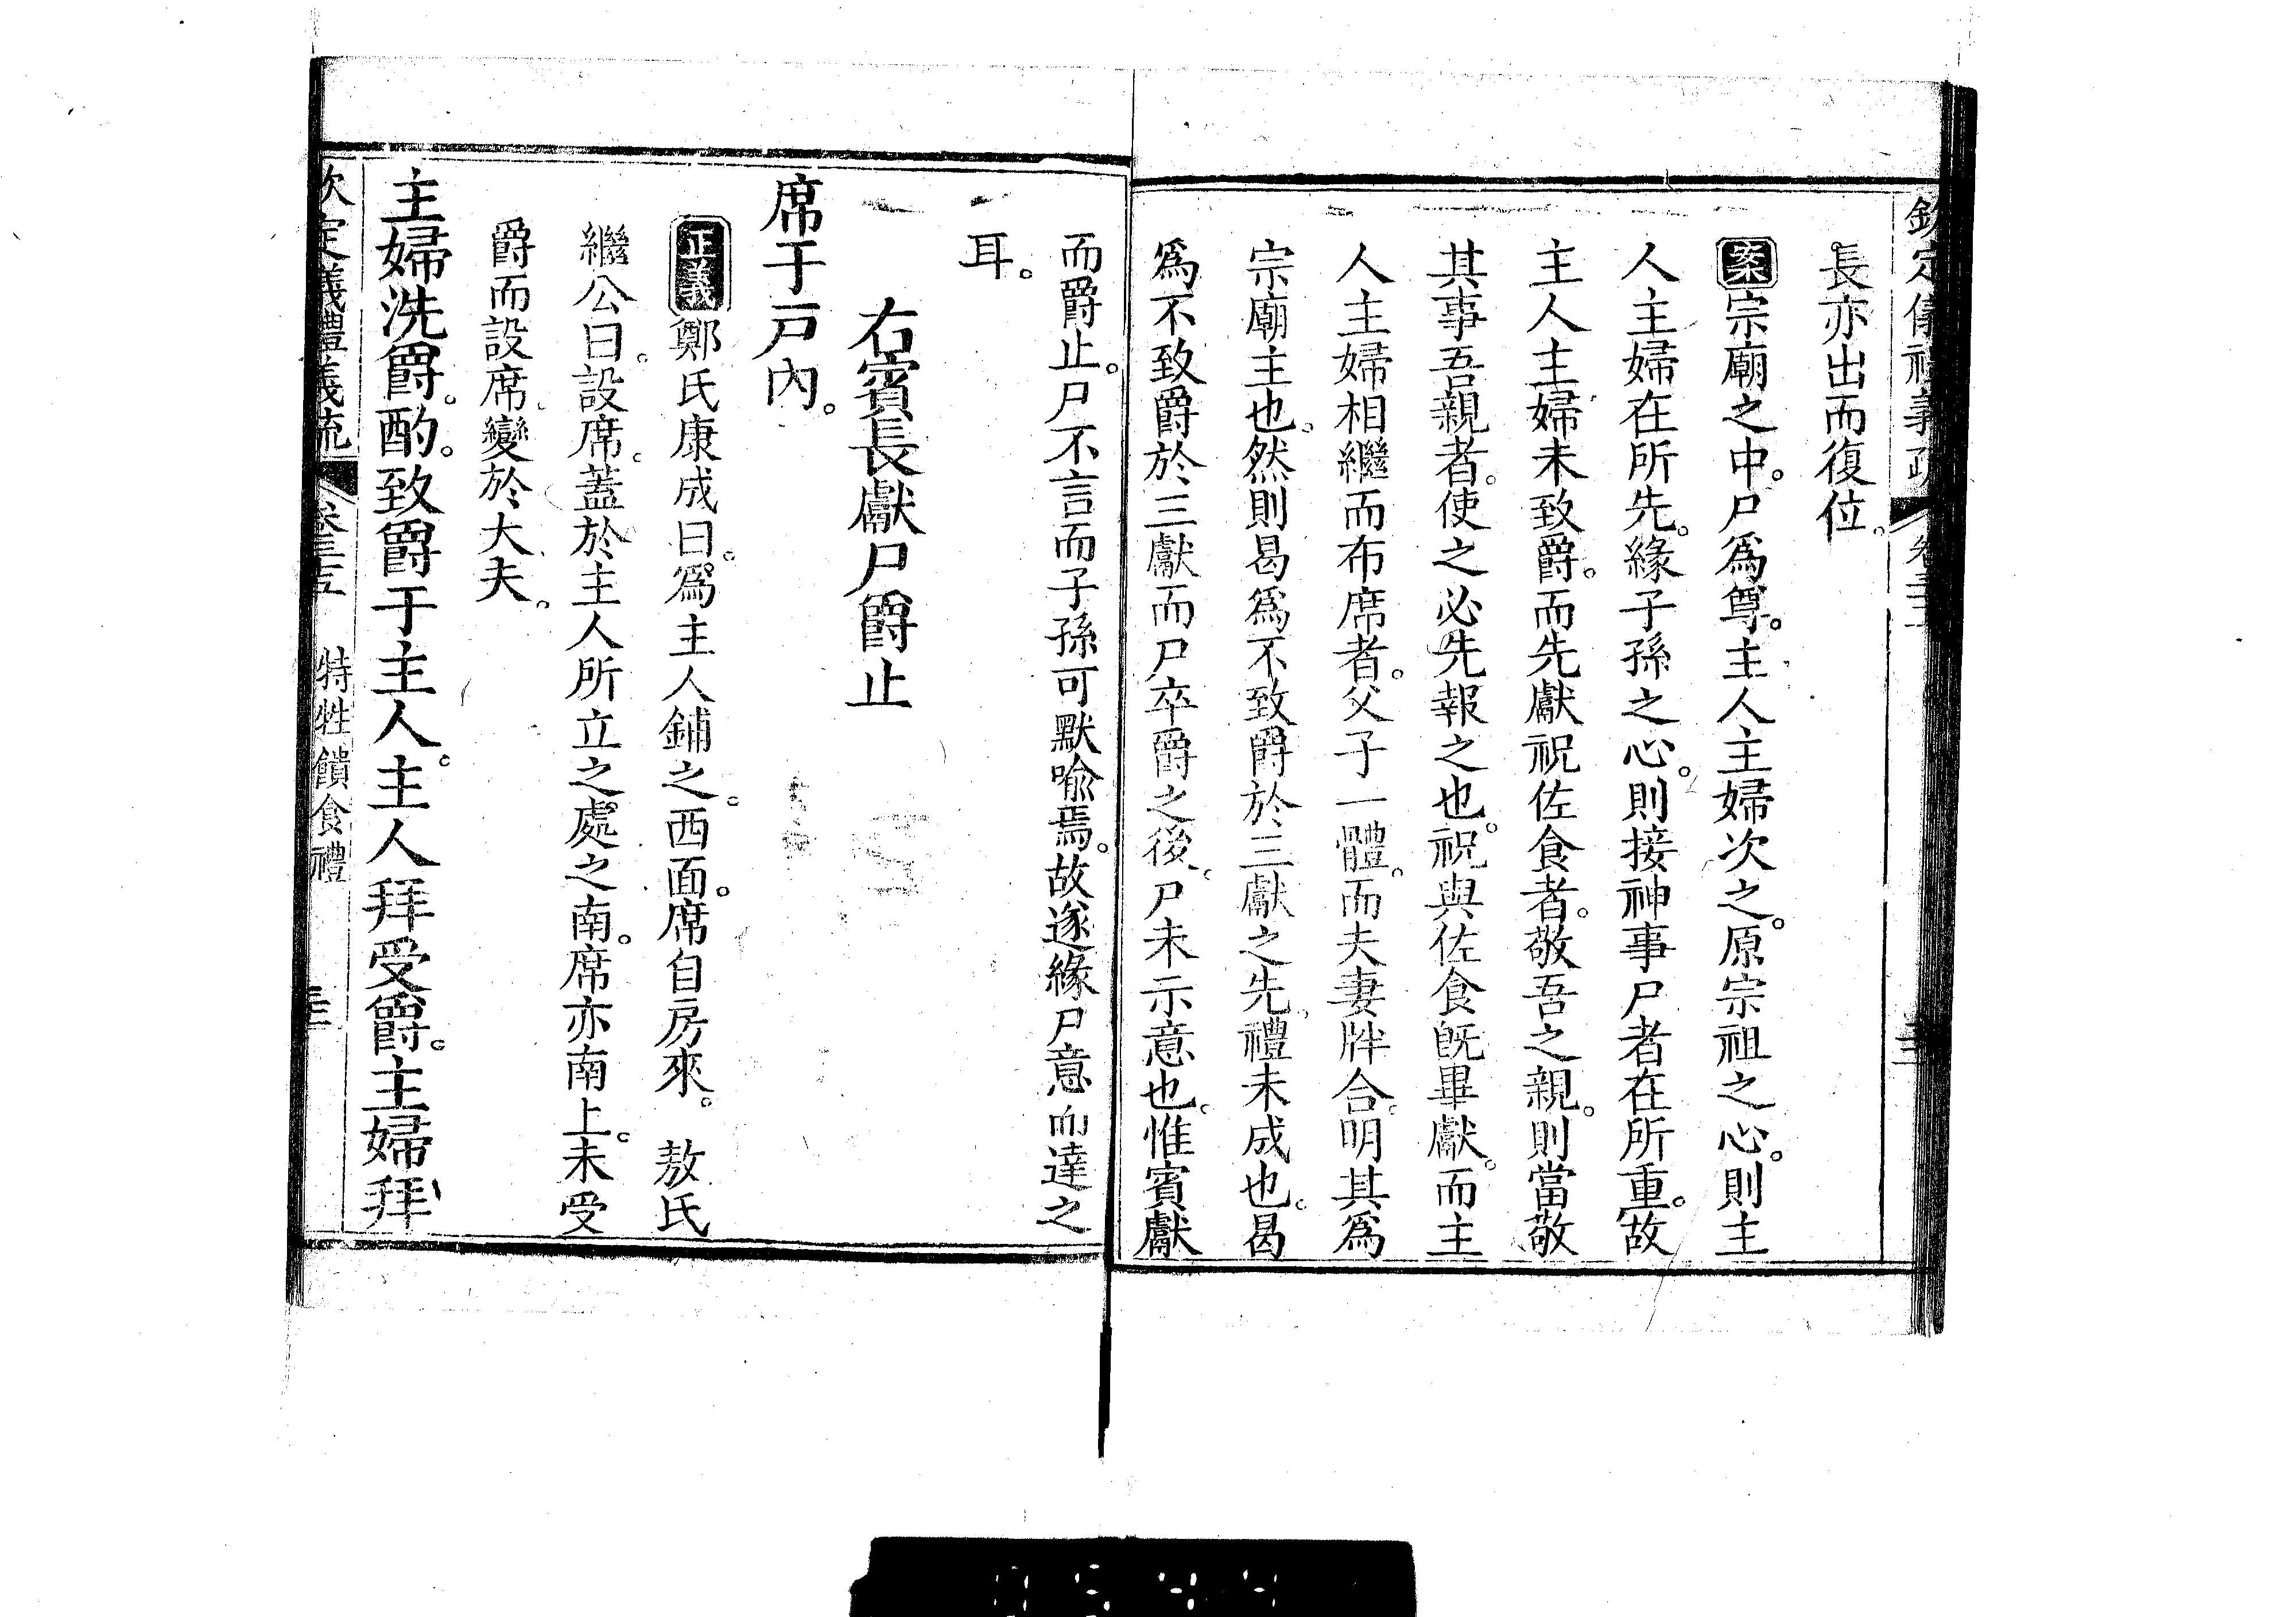 長亦出而復位。
案宗廟之中。尸爲尊。主人主婦次之。原宗祖之心。則主
人主婦在所先。緣子孫之心。則接神事尸者在所重。故
主人主婦未致爵。而先獻祝佐食者。敬吾之親。則當敬
其事吾親者。使之必先報之也。祝與佐食旣畢獻。而主
人主婦相繼而布席者。父子一體。而夫妻牉合。明其爲
宗廟主也。然則曷爲不致爵於三獻之先。禮未成也。曷
爲不致爵於三獻而尸卒爵之後。尸未示意也。惟賓獻
而爵止。尸不言而子孫可默喻焉。故遂緣尸意而達之
耳。
右賓長獻尸爵止
席于戸內。
正義鄭氏康成曰。爲主人鋪之。西面。席自房來。 敖氏
繼公曰。設席。蓋於主人所立之處之南。席亦南上。未受
爵而設席。變於大夫。
主婦洗爵。酌。致爵于主人。主人拜受爵。主婦拜
欽定儀禮義疏 卷三五 特牲饋食禮